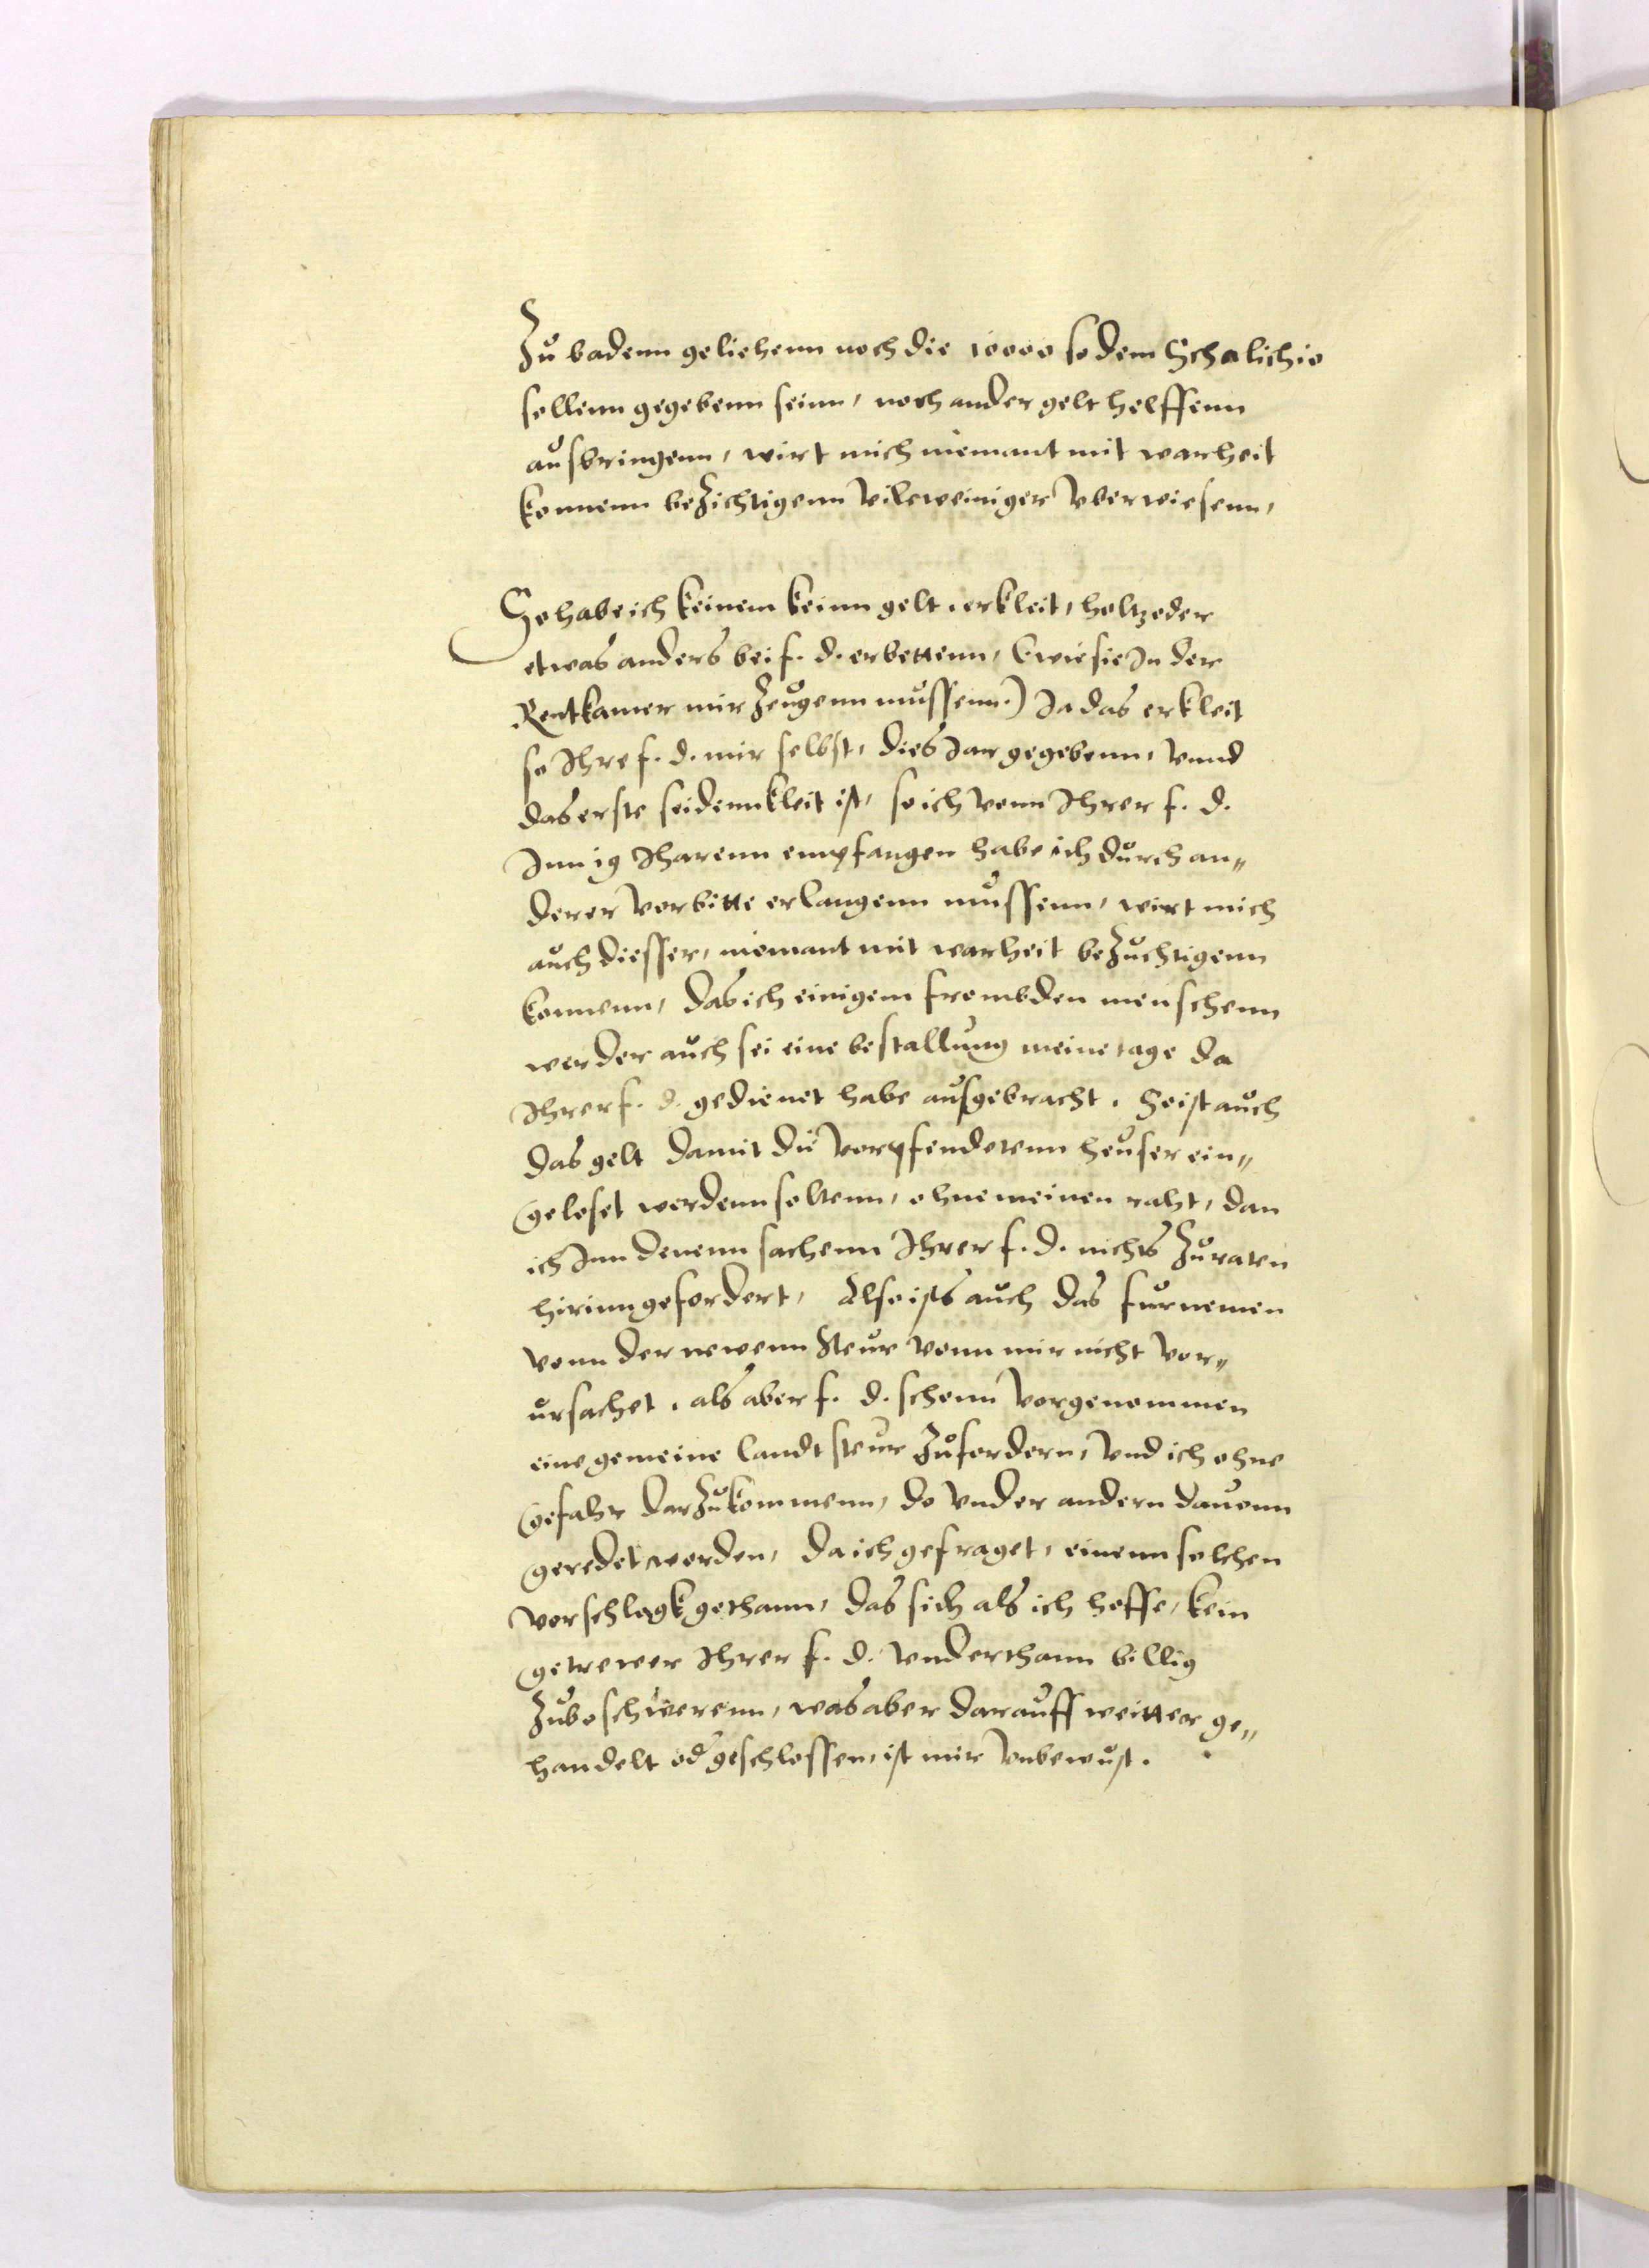 Zu badenn geliehenn noch die 10000 so dem Schalichio
sollenn gegebenn seinn, noch ander gelt helffenn
ausbringenn, wirt mich niemant mit warheit
konnenn beZichtigenn vilweiniger vberwiesenn,
So habe ich keinem keinn gelt. erkleit, holtz oder
etwas anders bei f. d. erbettenn, (wie sie In der
Rentkamer mir Zeugenn mussenn.) Ja das erkleit
so Ihre f. d. mir selbst, dies Jar gegebenn, vnnd
das erste seidennkleit ist, so ich vonn Ihrer f. d.
Inn 19 Jharenn empfangen habe ich durch an„
derer vorbitte erlangenn mussenn, wirt mich
auch diesser, niemant mit warheit beZuchtigenn
konnenn, das ich einigem frombden menschenn
werder auch sei eine bestallung meine tage da
Ihrer f. d. gedienet habe ausgebracht. So ist auch
das gelt damit die vorpfendetenn heuser ein„
geloset werdenn soltenn, ohne meinen raht, dan
ich Inn denenn sachenn Ihrer f. d. nichts Zuraten
hirinn gefordert, Also ists auch das furnemen
vonn der newenn Steur vonn mir nicht vor„
ursachet. als aber f. d. schonn vorgenommen
eine gemeine landt steur Zufordern, vnd ich ohne
gefahr darZukommenn, do vnder andern dauonn
geredet worden, da ich gefraget, einenn solchen
vorschlagk gethann, das sich als ich hoffe, kein
getrewer Ihrer f. d. vnderthann billig
Zubeschwerenn, was aber darauff weitter ge„
handelt od geschlossen, ist mir vnbewust.